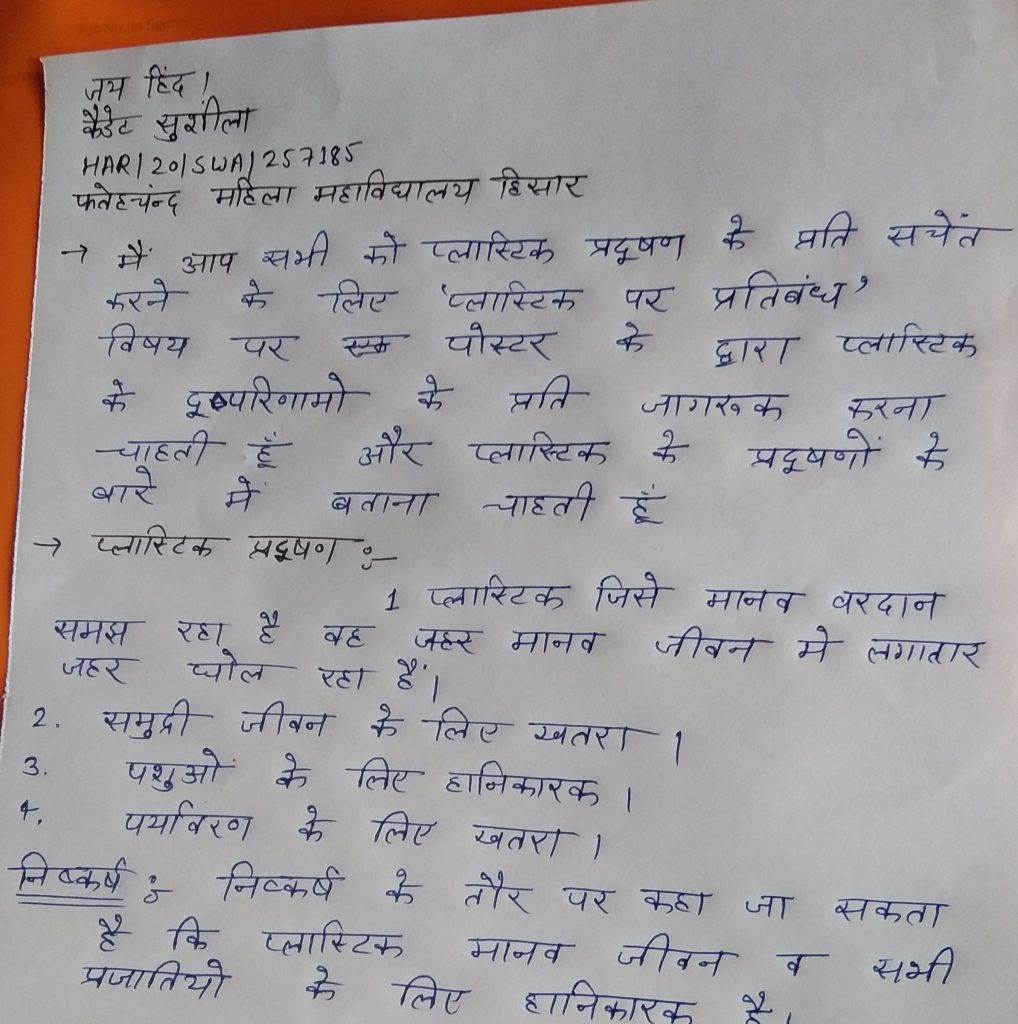 जय हिंद।
कैडेट सुशीला
HAR/20/SWA/257185
फतेहचंद महिला महाविद्यालय हिसार
→ मैं आप सभी को प्लास्टिक प्रदूषण के प्रति सचेंत
करने के लिए 'प्लास्टिक पर प्रतिबंध'
विषय पर एक पोस्टर के द्वारा प्लास्टिक
के दूष्परिणामो के प्रति जागरूक करना
चाहती हूँ और प्लास्टिक के प्रदूषणों के
बारे में बताना चाहती हूँ
→ प्लास्टिक प्रदूषण :-
1 प्लास्टिक जिसे मानव वरदान
समझ रहा है वह जहर मानव जीवन मे लगातार
जहर घोल रहा हैं।
2. समुद्री जीवन के लिए खतरा।
3. पशुओं के लिए हानिकारक।
4. पर्यावरण के लिए खतरा।
निष्कर्ष :- निष्कर्ष के तौर पर कहा जा सकता
है कि प्लास्टिक मानव जीवन व सभी
प्रजातियो के लिए हानिकारक है।